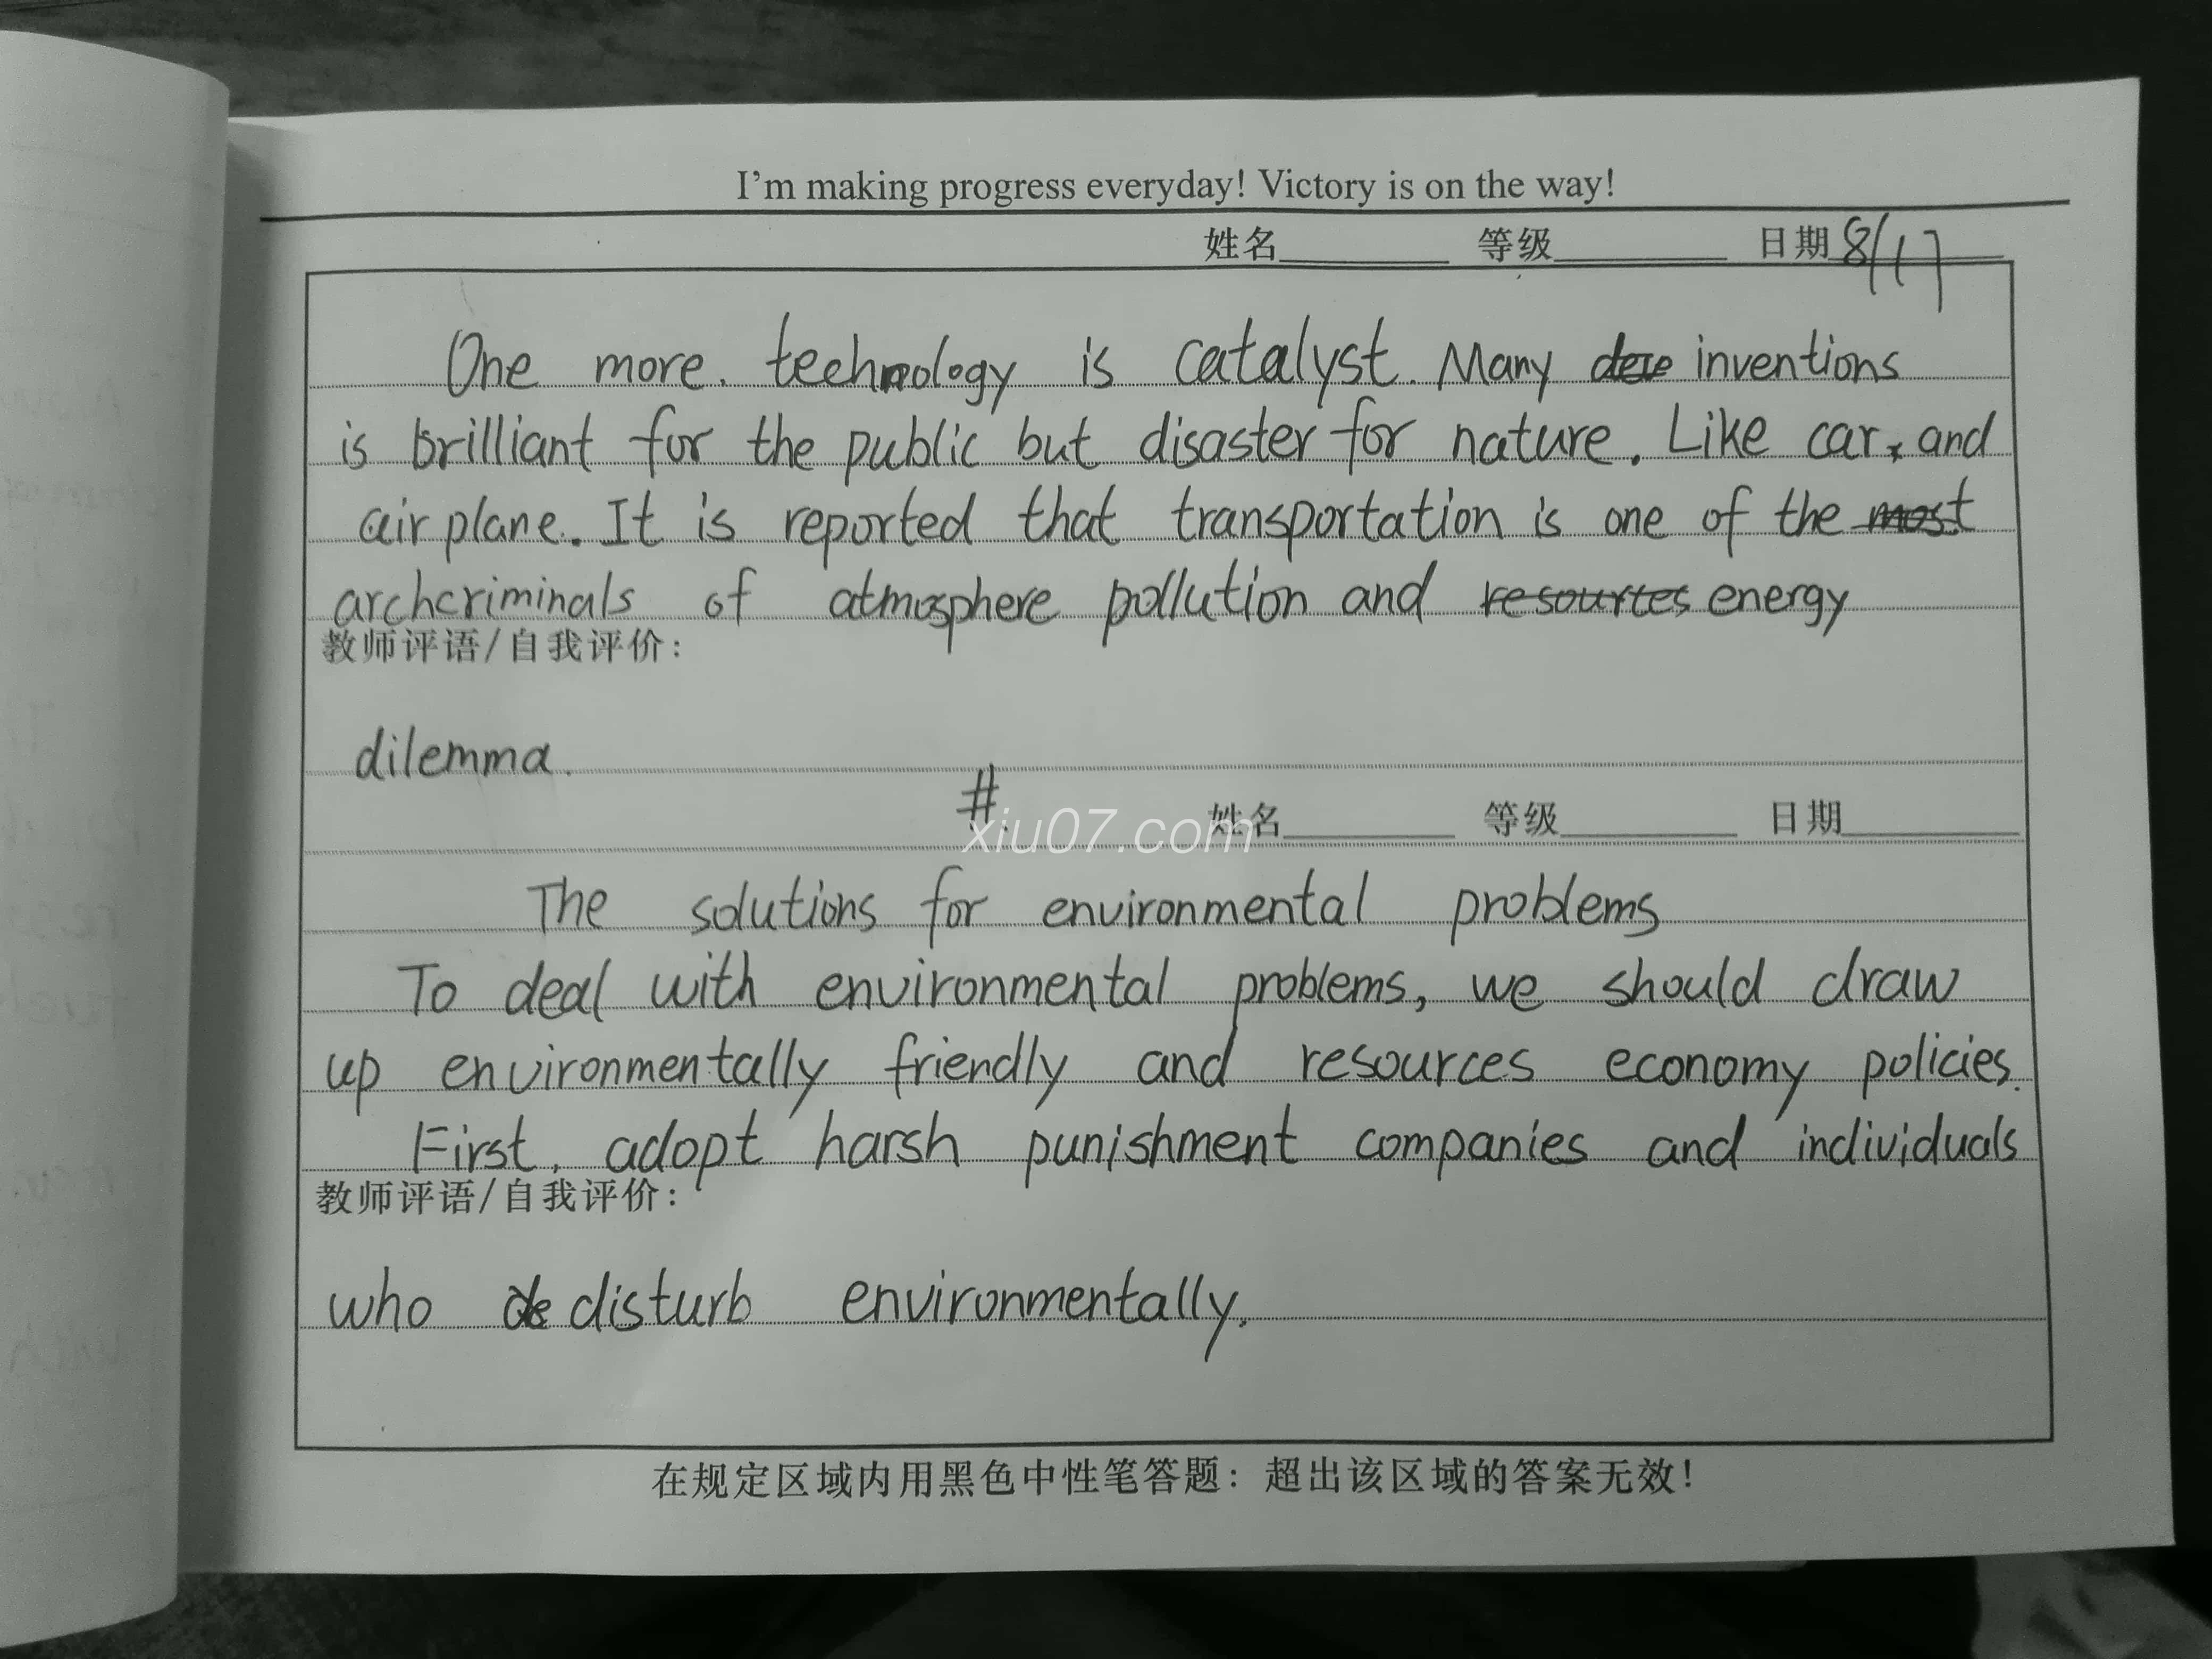 I'm making progress everyday! Victory is on the way!
姓名 等级 日期 8/17
One more. technology is catalyst. Many inventions
is brilliant for the public but disaster for nature. Like car, and
airplane. It is reported that transportation is one of the most
archcriminals of atmosphere pollution and resources energy
教师评语/自我评价:
dilemma.
#.
xiu07.com
姓名 等级 日期
The solutions for environmental problems
To deal with environmental problems, we should draw
up environmentally friendly and resources economy policies.
First, adopt harsh punishment companies and individuals
教师评语/自我评价:
who disturb environmentally.
在规定区域内用黑色中性笔答题: 超出该区域的答案无效!